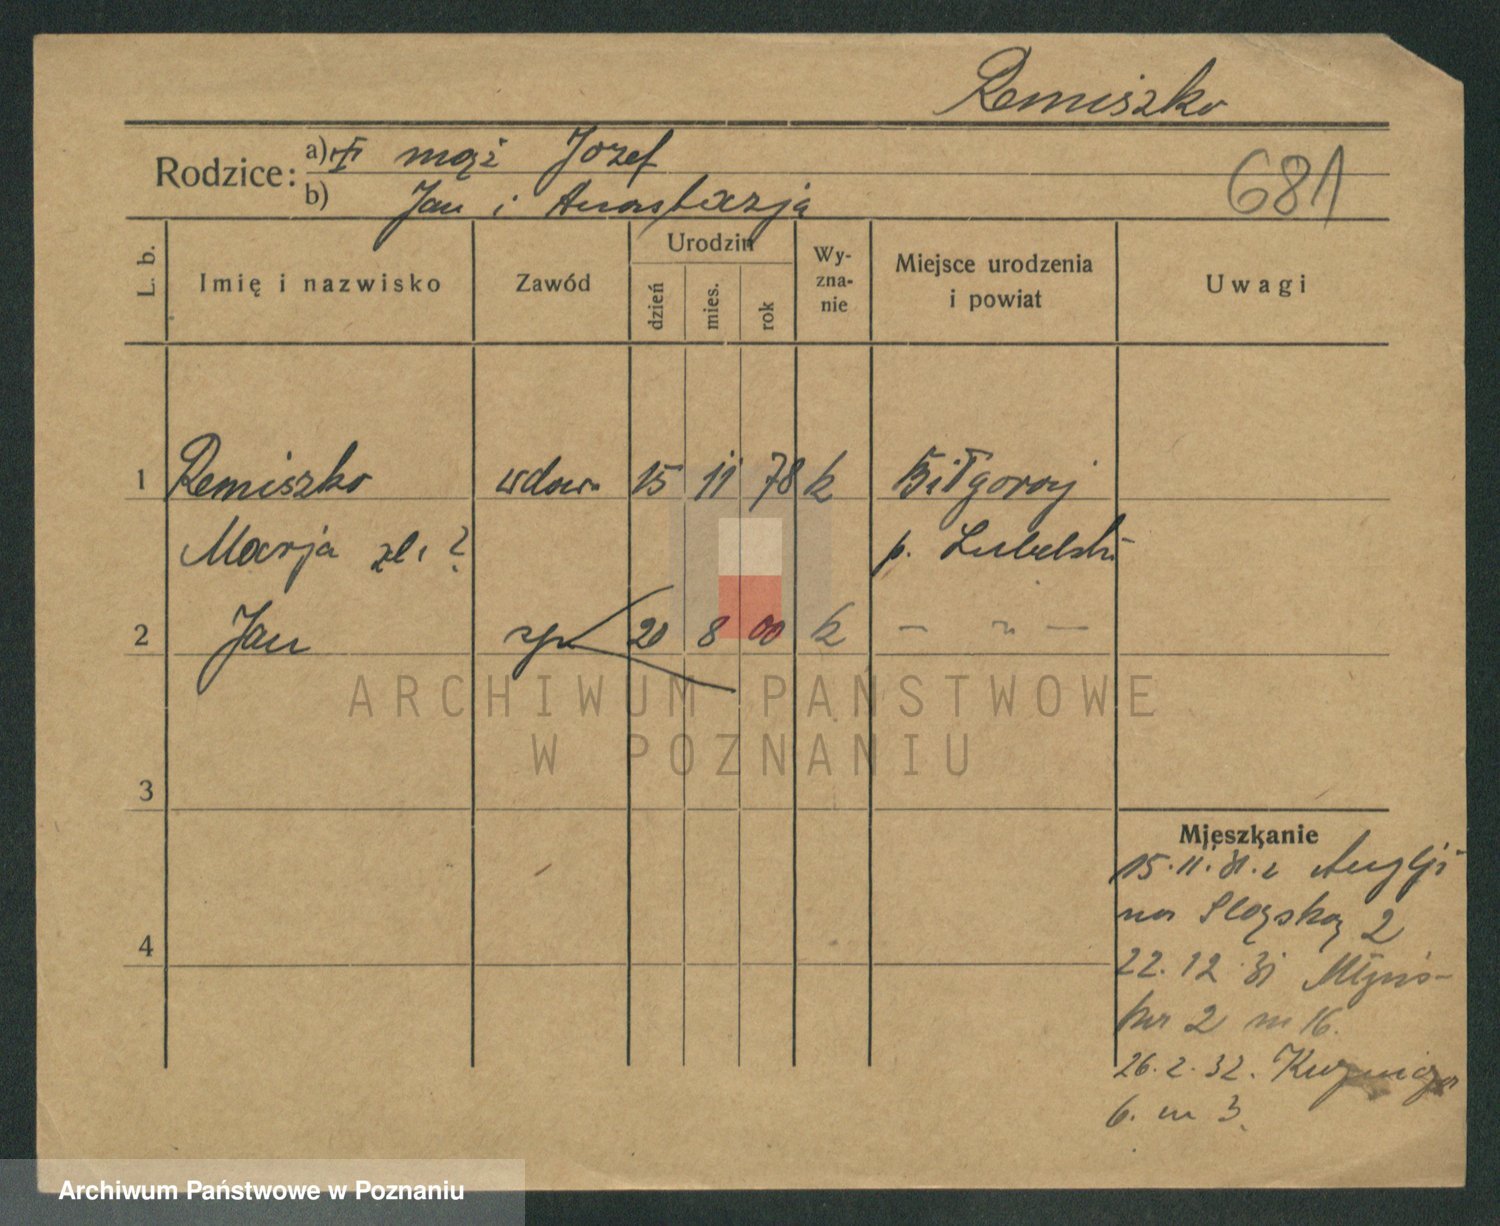 Remiszko
Rodzice:
a) I mąż Józef
b) Jan i Anastazja
681
L. b.
Imię i nazwisko
Zawód
Urodzin
dzień
mies.
rok
Wy-
zna-
nie
Miejsce urodzenia
i powiat
Uwagi
1 Remiszko wdowa 15 11 78 k Biłgoraj
Marja ?
p. Lubelski
2 Jan 20 8 00 k — " —
ARCHIWUM PAŃSTWOWE
W POZNANIU
3
4
Mieszkanie
15.11.31. z Anglji
na Śląską 2
22.12.31 Młyńs-
ka 2 m 16.
26.2.32. Kuźnicza
6. m 3.
Archiwum Państwowe w Poznaniu